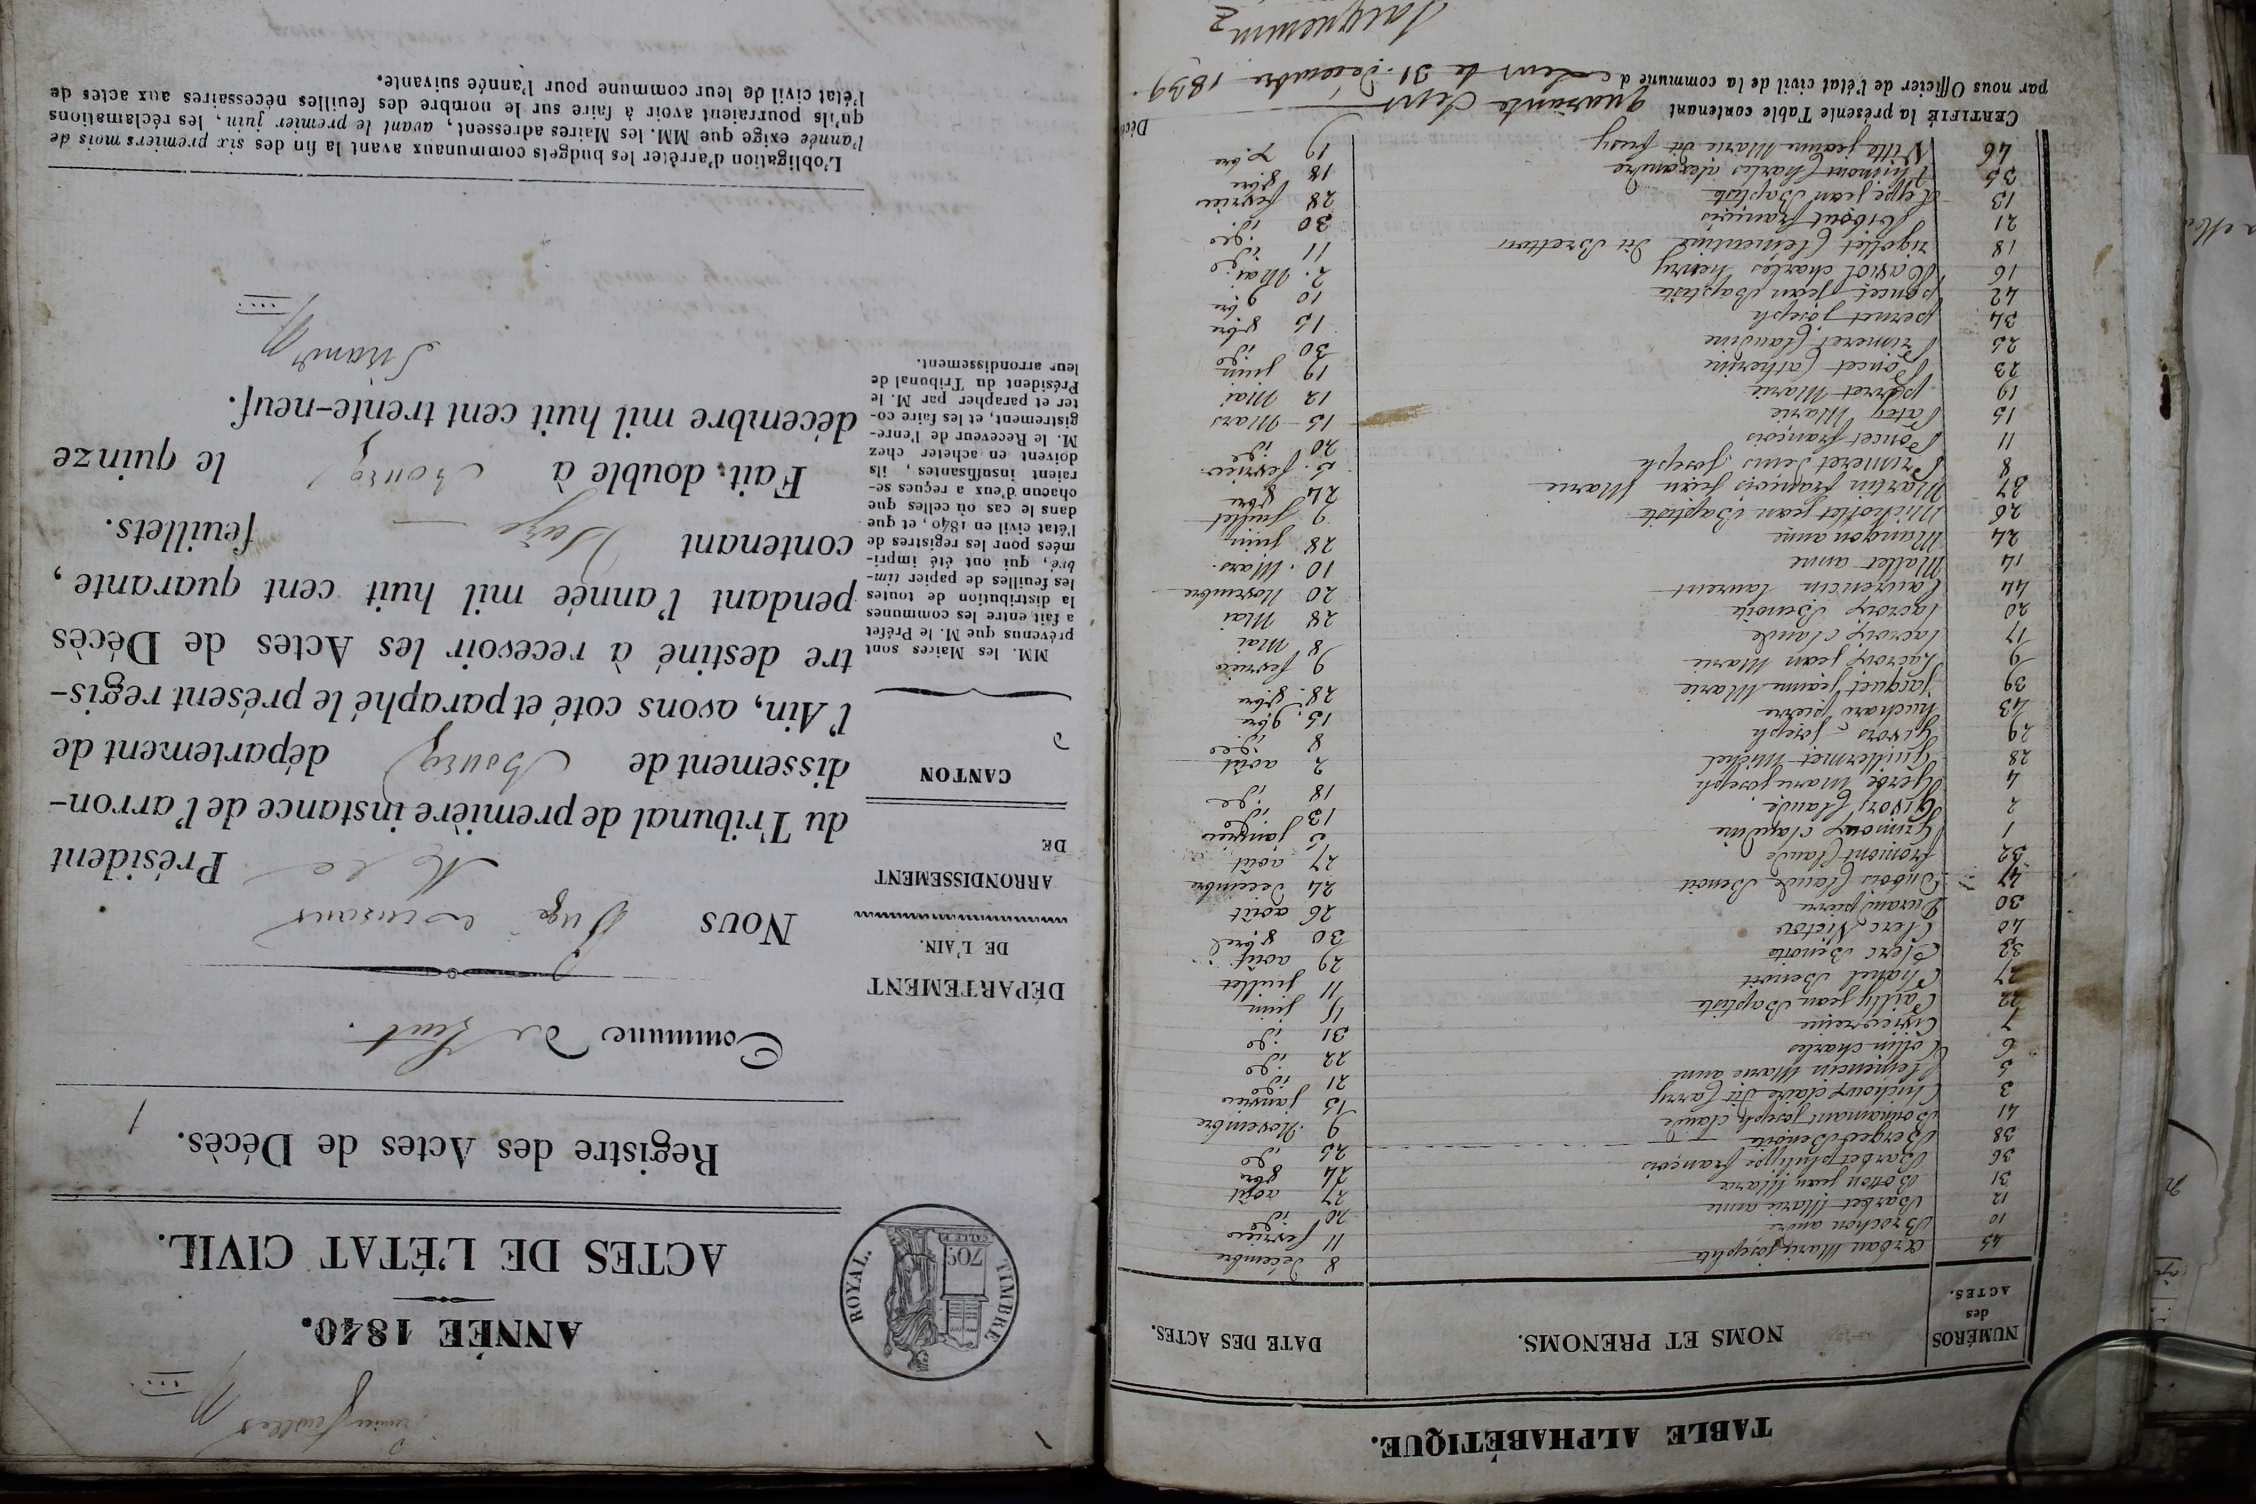 TABLE ALPHABÉTIQUE.
NUMÉROS des ACTES. NOMS ET PRENOMS. DATE DES ACTES.
45 arban Marie josephte 8 décembre
10 Brochon andré 11 fevrier
12 Barbet Marie anne 20 id
31 Botton jean Marie 27 août
36 Barbet philippe françois 24 8bre
38 Berger Benoite 25 id
41 Bonnamant joseph Claude 9 Novembre
3 Chichoux claire dit Carry 15 janvier
5 Clemencin Marie anne 21 id
6 Collin charles 22 id
7 31 id
22 Cailly jean Baptiste 15 juin
27 Chanel Benoit 11 juillet
33 Clerc Benoite 29 août
40 Clerc Victor 30 8bre
30 Durand pierre 26 août
47 Dubois Claude Benoit 24 decembre
32 fromont Claude 27 août
1 Grimoux claudine 5 janvier
2 Givors Claude 13 id
4 Gerbe Marie joseph 18 id
28 Guillermet Michel 2 août
29 Givors joseph 8 id
43 huchard pierre 15 9bre
39 jacquet jeanne Marie 28 8bre
9 Lacroix jean Marie 9 fevrier
17 lacroix claude 8 Mai
20 lacroix Benoite 28 Mai
44 Laurencin laurent 20 Novembre
14 Mallet anne 10 Mars
24 Mangon anne 28 juin
26 Michollet jean Baptiste 9 juillet
37 Martin françois jean Marie 24 8bre
8 Primeret denis joseph 5 fevrier
11 Poncet françois 20 id
15 Pater Marie 15 Mars
19 perret Marie 12 Mai
23 Poncet Catherine 19 juin
25 Primeret Claudine 30 id
34 pernet joseph 15 8bre
42 poncet jean Baptiste 10 9bre
16 Raviol charles henry 2 Mai
18 rigollet Clementine dit Bretton 11 id
21 Ribout françois 30 id
13 jean Baptiste 28 fevrier
35 Charles alexandre 18 8bre
46 Ville jeanne Marie dit fusy 19 Xbre
CERTIFIÉ la présente Table contenant quarante Sept Décès
par nous Officier de l'état civil de la commune d le 31 Décembre 1839.
Jacquemin
1
premier feuillet
ANNÉE 1840.
TIMBRE ROYAL.
70c
ACTES DE L'ÉTAT CIVIL.
Registre des Actes de Décès. 1
Commune de
DÉPARTEMENT
DE L'AIN.
ARRONDISSEMENT
DE
CANTON
d
MM. les Maires sont
prévenus que M. le Préfet
a fait entre les communes
la distribution de toutes
les feuilles de papier tim-
bré, qui ont été impri-
mées pour les registres de
l'état civil en 1840, et que
dans le cas où celles que
chacun d'eux a reçues se-
raient insuffisantes, ils
doivent en acheter chez
M. le Receveur de l'enre-
gistrement, et les faire co-
ter et parapher par M. le
Président du Tribunal de
leur arrondissement.
Nous Juge
Président
du Tribunal de première instance de l'arron-
dissement de Bourg département de
l'Ain, avons coté et paraphé le présent regis-
tre destiné à recevoir les Actes de Décès
pendant l'année mil huit cent quarante,
contenant Douze feuillets.
Fait double à Bourg le quinze
décembre mil huit cent trente-neuf.
L'obligation d'arrêter les budgets communaux avant la fin des six premiers mois de
l'année exige que MM. les Maires adressent, avant le premier juin, les réclamations
qu'ils pourraient avoir à faire sur le nombre des feuilles nécessaires aux actes de
l'état civil de leur commune pour l'année suivante.